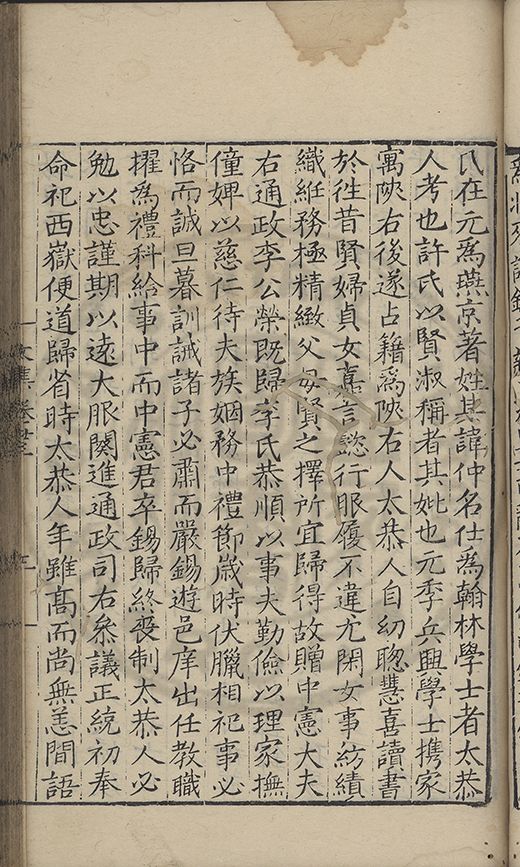 氏在元爲燕京著姓其諱仲名仕爲翰林學士者太恭
人考也許氏以賢淑稱者其妣也元季兵興學士携家
寓陜右後遂占籍爲陜右人太恭人自㓜聦慧喜讀書
於徃昔賢婦貞女嘉言懿行服履不違尤閑女事紡績
織絍務極精緻父母賢之擇所宜歸得故贈中憲大夫
右通政李公榮既歸李氏恭順以事夫勤儉以理家撫
僮婢以慈仁待夫族姻務中禮節歳時伏臘相祀事必
恪而誠旦暮訓誡諸子必肅而嚴錫遊邑庠出任教職
擢爲禮科給事中而中憲君卒錫歸終䘮制太恭人必
勉以忠謹期以遠大服闋進通政司右叅議正統初奉
命祀西嶽便道歸省時太恭人年雖髙而尚無恙間語